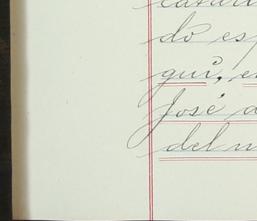 do es
qui, e
José a
del n